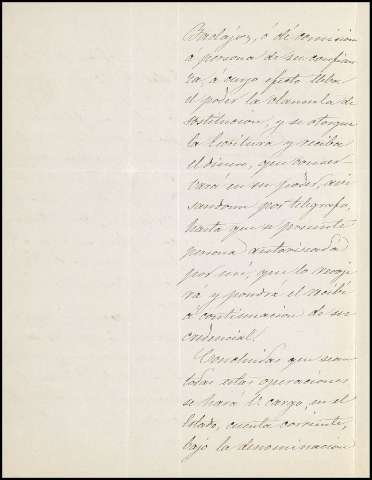 Badajoz, ó dé comision
á persona de su confian
za, a cuyo efecto lleba
el poder la clausula de
sostitucion, y se otorgue
la Escritura y reciba
el dinero, que conser
vará en su poder, avi
sandome por telegrafo,
hasta que se presente
persona autorisada
por mi, que lo recoje
rá y pondrá el recibí
á continuacion de su
credencial.
Concluidas que sean
todas estas operaciones
se hará V. cargo, en el
Estado, cuenta corriente,
bajo la denominacion